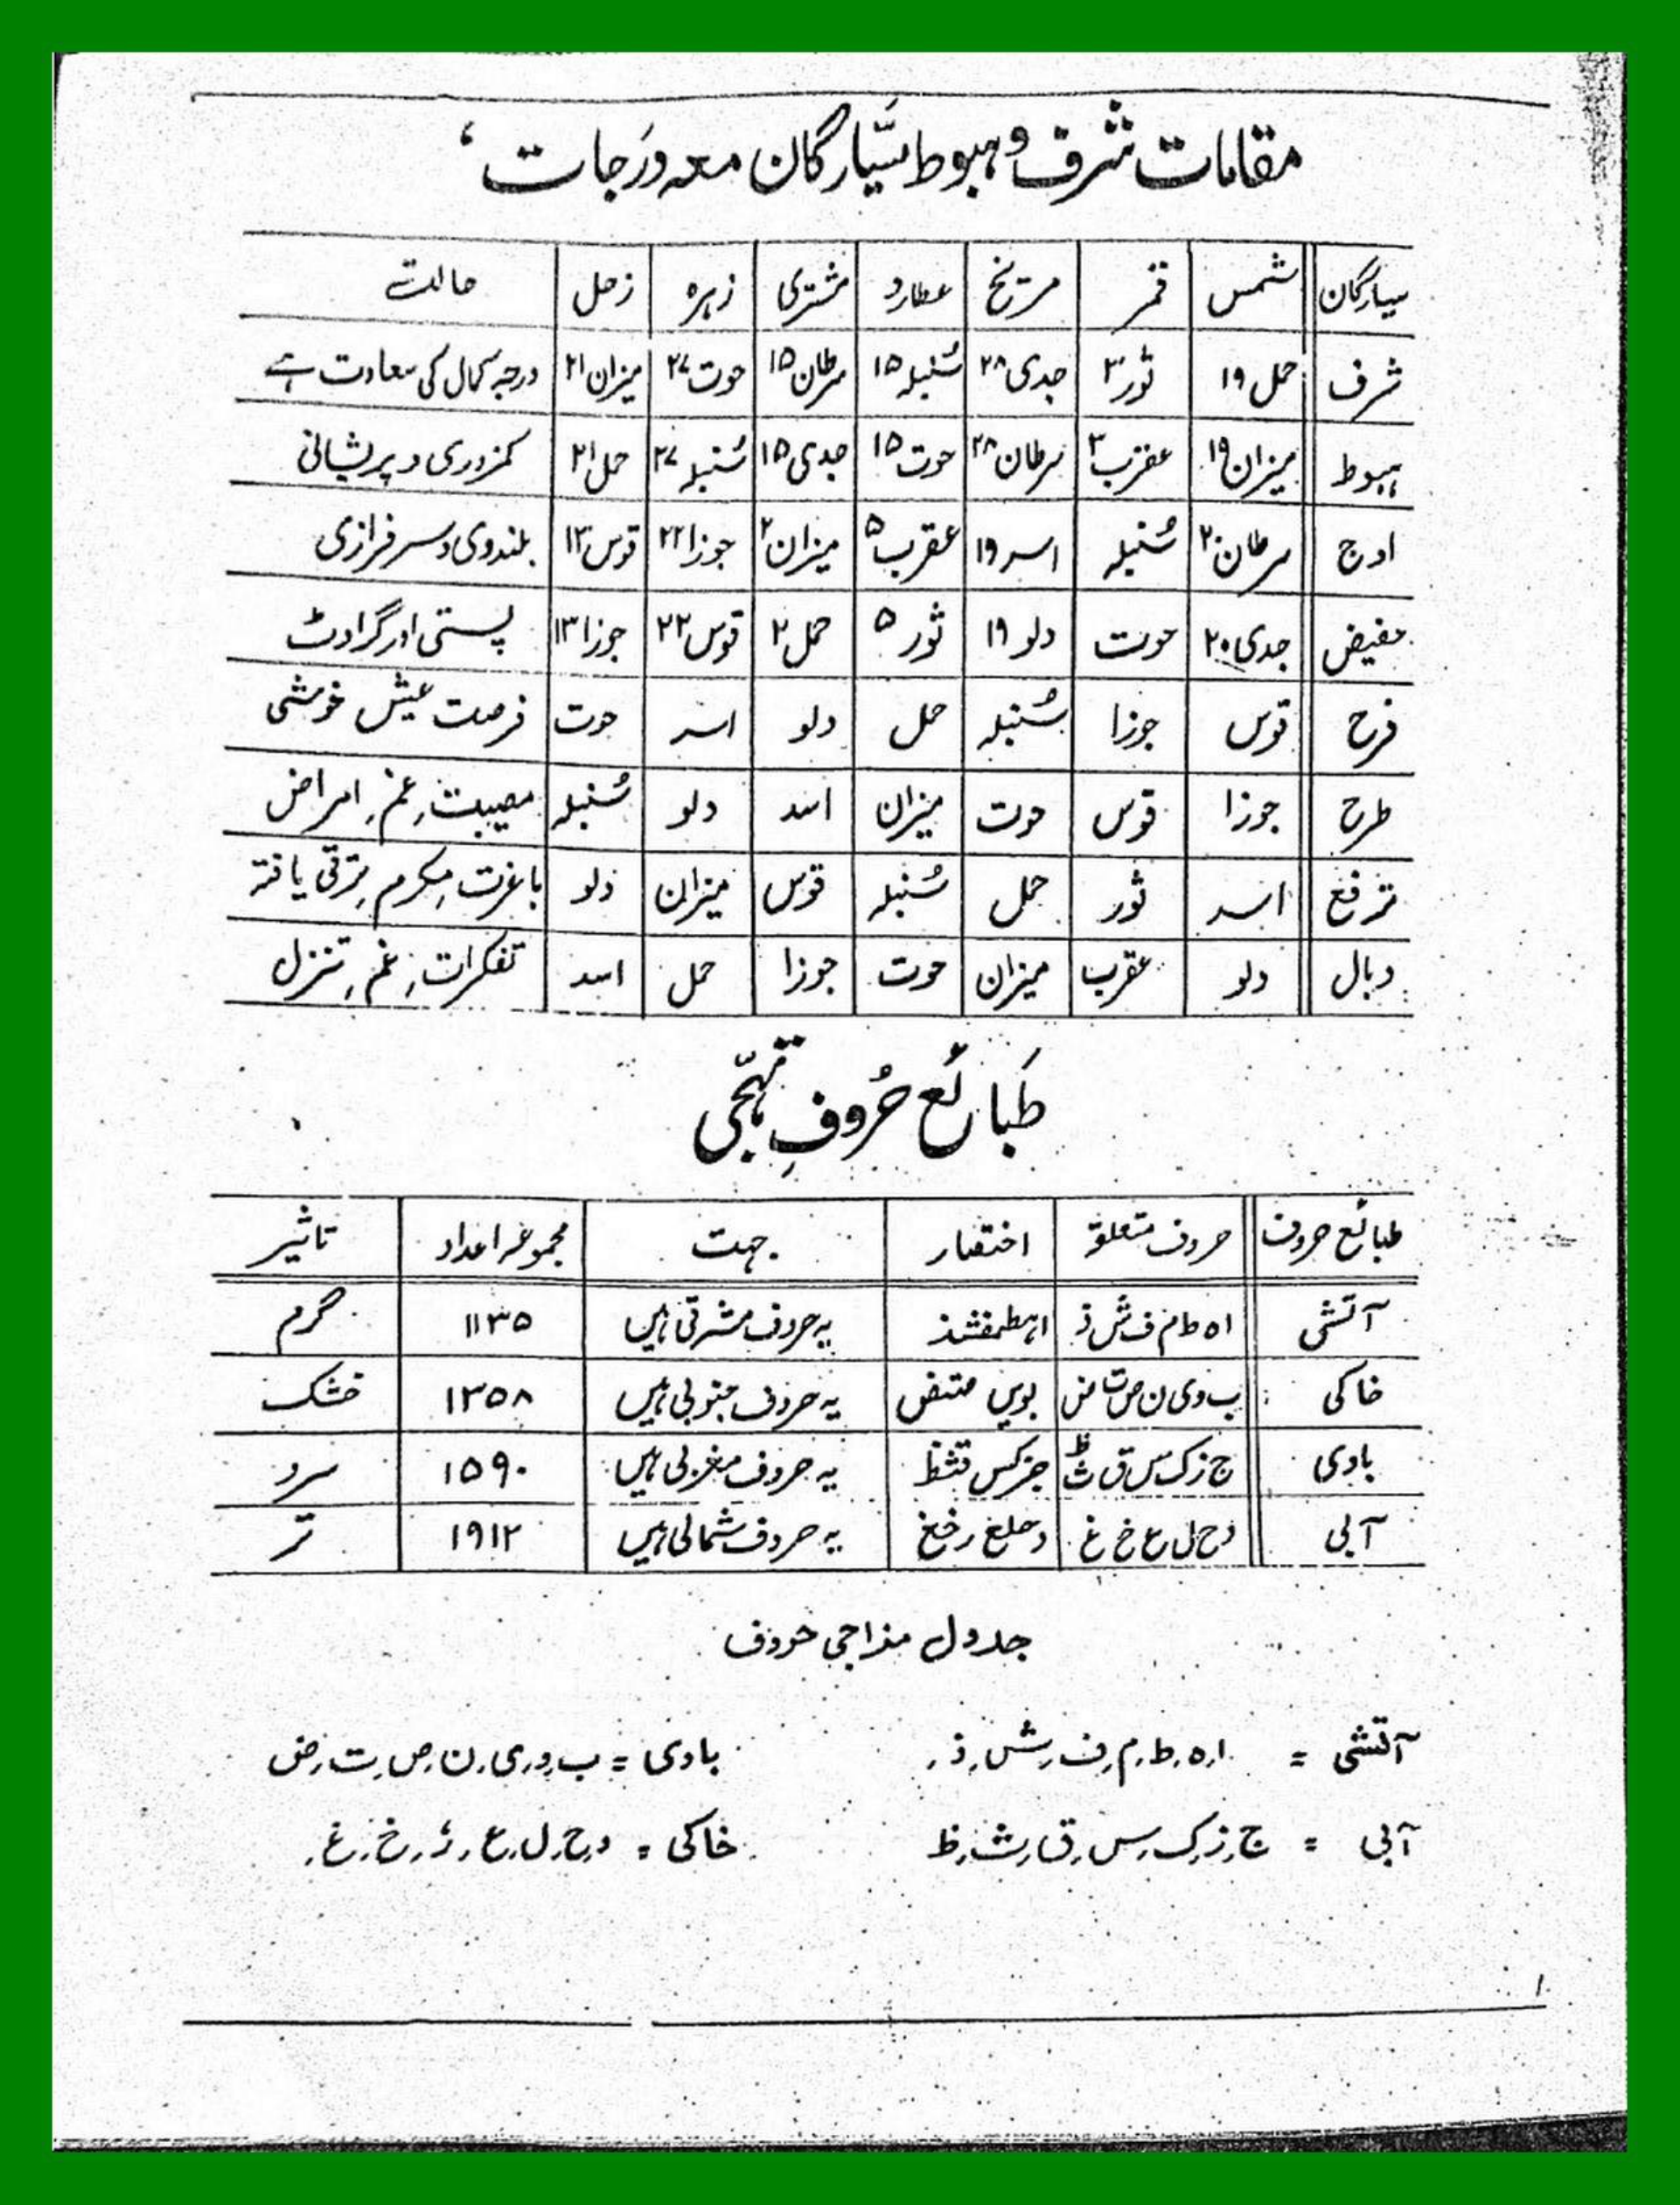 مقامات شرف و ہبوط سیّارگان معہ درَجات
سیارگان شمس قمر مریخ عطارد مشتری زہرہ زحل حالت
شرف حمل ۱۹ ثور ۳ جدی ۲۸ سُنبلہ ۱۵ سرطان ۱۵ حوت ۲۷ میزان ۲۱ درجہ کمال کی سعادت ہے
ہبوط میزان ۱۹ عقرب ۳ سرطان ۲۸ حوت ۱۵ جدی ۱۵ سُنبلہ ۲۷ حمل ۲۱ کمزوری و پریشانی
اوج سرطان ۲۰ سُنبلہ اسد ۱۹ عقرب ۵ میزان ۲ جوزا ۲۲ قوس ۱۳ بلندوی و سرفرازی
حفیض جدی ۲۰ حوت دلو ۱۹ ثور ۵ حمل ۲ قوس ۲۲ جوزا ۱۳ پستی اور گراوٹ
فرح قوس جوزا سُنبلہ حمل دلو اسد حوت فرصت عیش خوشی
طرح جوزا قوس حوت میزان اسد دلو سُنبلہ مصیبت، غم، امراض
ترفع اسد ثور حمل سُنبلہ قوس میزان دلو باعزت، مکرم، ترقی یافتہ
وبال دلو عقرب میزان حوت جوزا حمل اسد تفکرات، غم، تنزل
طَبائع حُروفِ تہجّی
طبائع حروف حروف متعلقہ اختصار جہت مجموعہ اعداد تاثیر
آتشی ا ہ ط م ف ش ذ اہطمفشذ یہ حروف مشرقی ہیں ۱۱۳۵ گرم
خاکی ب و ی ن ص ت ض بوین صتض یہ حروف جنوبی ہیں ۱۳۵۸ خشک
بادی ج ز ک س ق ث ظ جزکس قثظ یہ حروف مغربی ہیں ۱۵۹۰ سرد
آبی د ح ل ع خ غ دحلع رخغ یہ حروف شمالی ہیں ۱۹۱۲ تر
جدول مزاجی حروف
آتشی = ا، ہ، ط، م، ف، ش، ذ، بادی = ب، و، ی، ن، ص، ت، ض
آبی = ج، ز، ک، س، ق، ث، ظ خاکی = د، ح، ل، ع، ر، خ، غ،